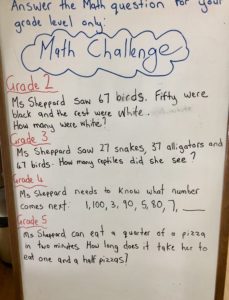 Answer the Math question for your
grade level only:
Math Challenge
Grade 2
Ms Sheppard saw 67 birds. Fifty were
black and the rest were white.
How many were white?
Grade 3
Ms Sheppard saw 27 snakes, 37 alligators and
67 birds. How many reptiles did she see?
Grade 4
Ms Sheppard needs to know what number
comes next: 1, 100, 3, 90, 5, 80, 7, __
Grade 5
Ms Sheppard can eat a quarter of a pizza
in two minutes. How long does it take her to
eat one and a half pizzas?